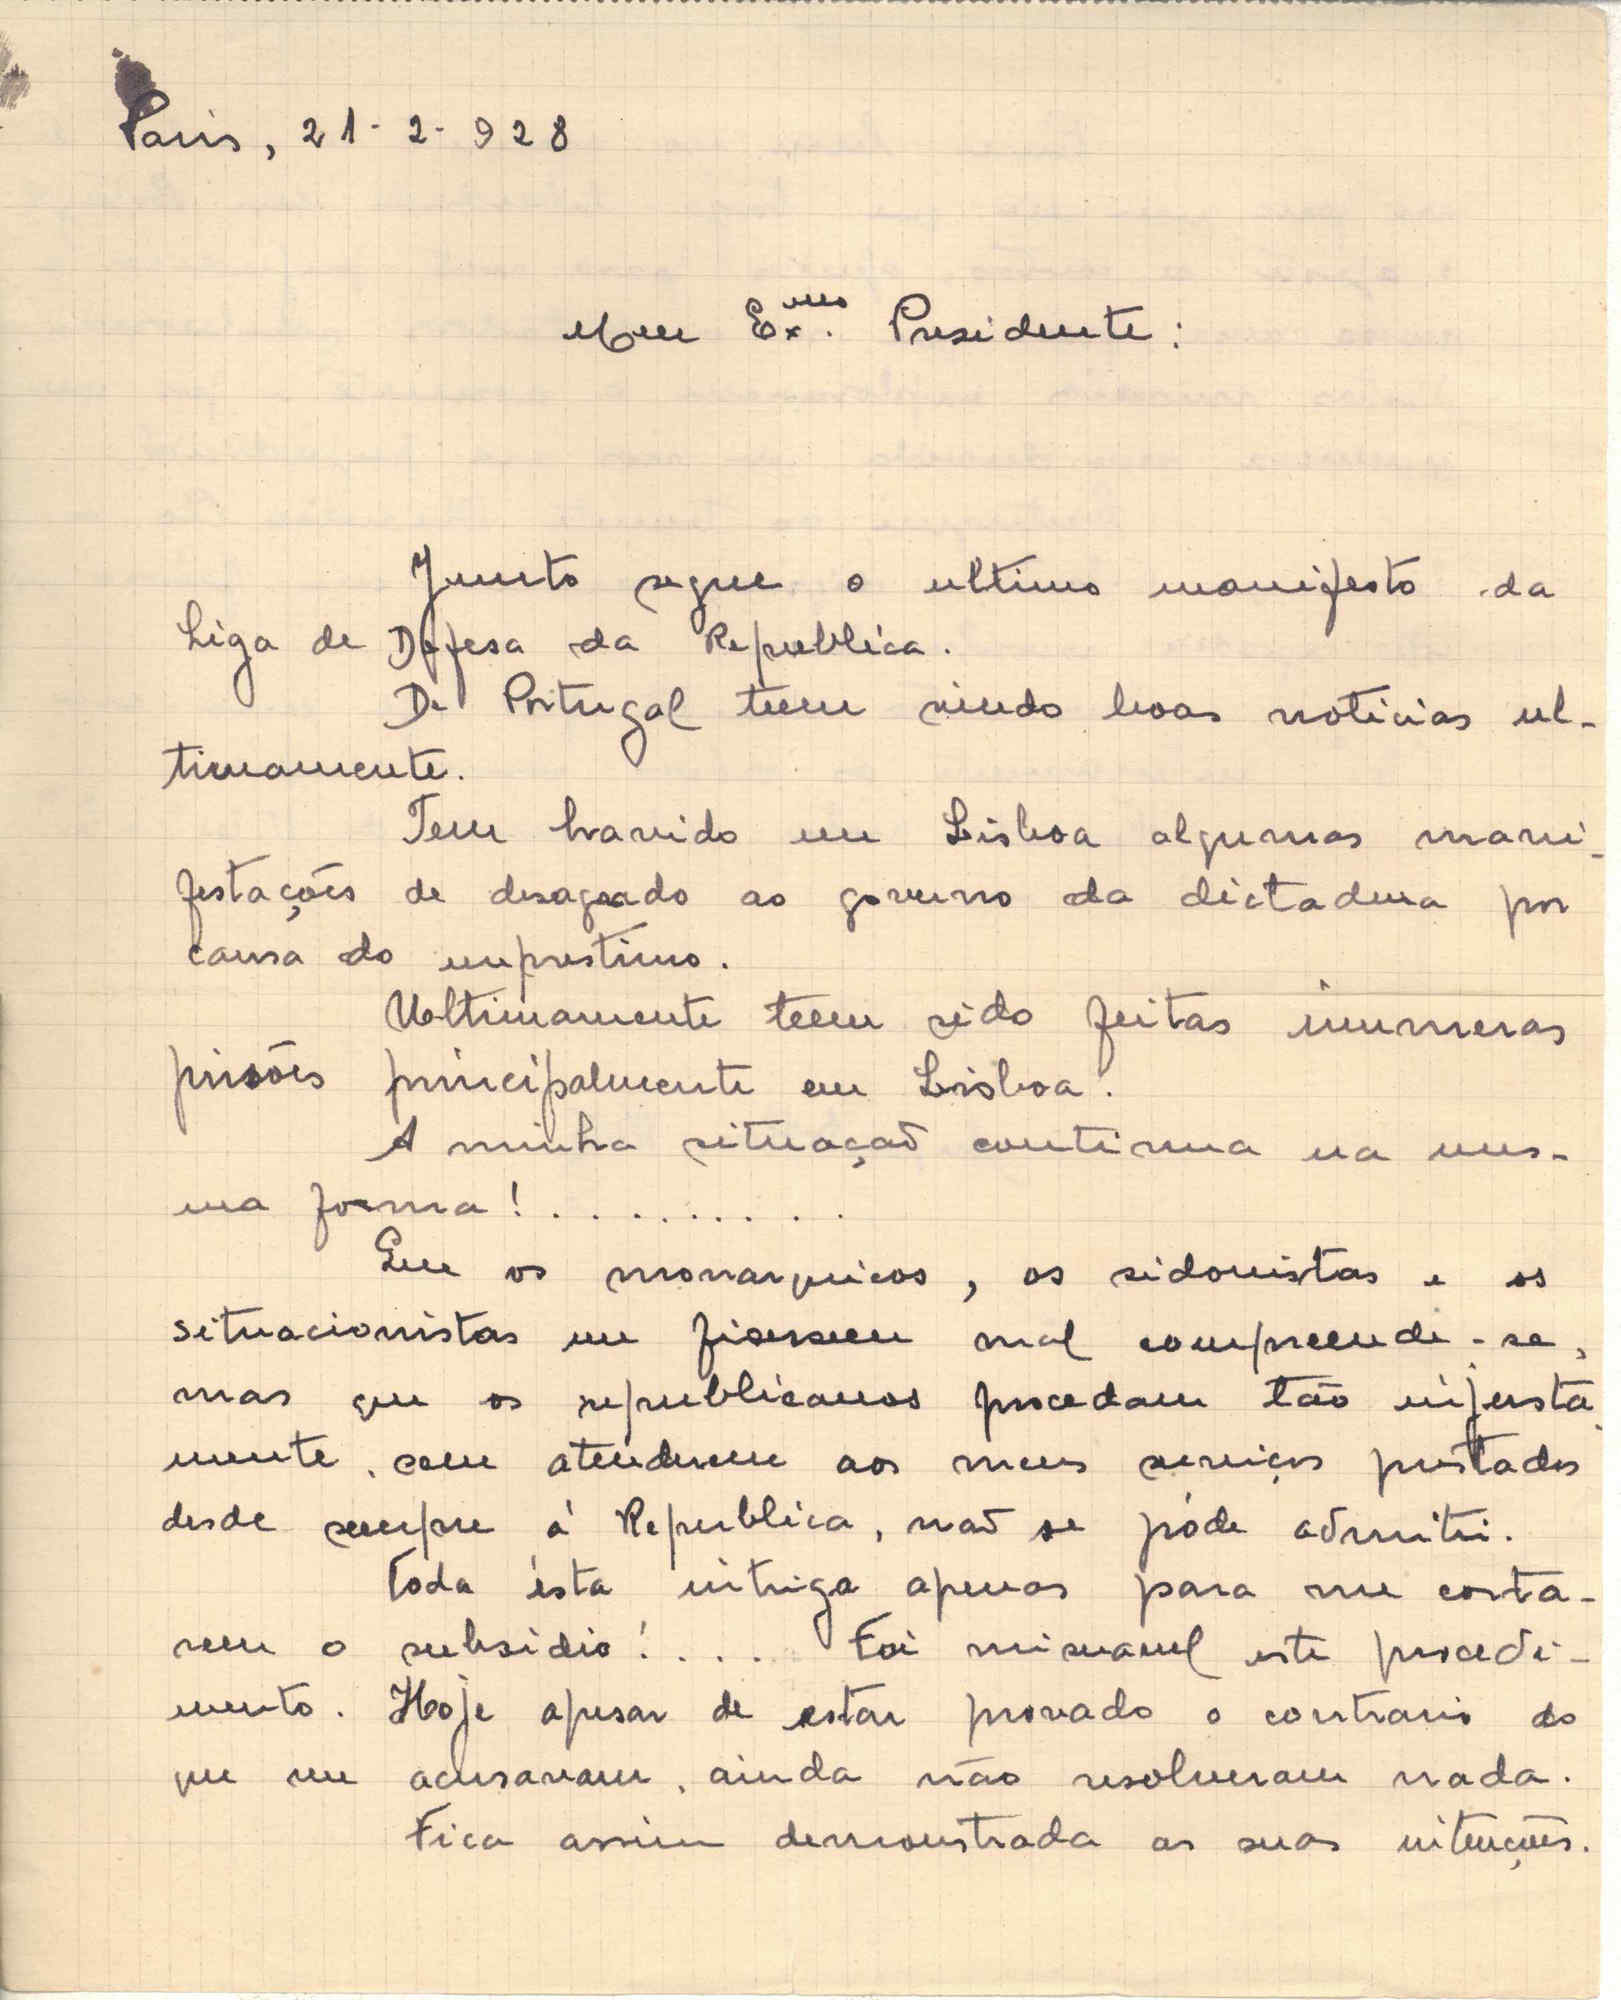 Paris, 21-2-928
Meu Ex.mo Presidente:
Junto segue o ultimo manifesto da
Liga de Defesa da Republica.
De Portugal teem vindo boas noticias ul-
timamente.
Tem havido em Lisboa algumas mani-
festações de desagrado ao governo da dictadura por
causa do emprestimo.
Ultimamente teem sido feitas inumeras
prisões principalmente em Lisboa.
A minha situação continua na mes-
ma forma! . . . . . . . . . .
Que os monarquicos, os sidonistas e os
situacionistas me fisessem mal compreende-se,
mas que os republicanos procedam tão injusta
mente, sem atenderem aos meus serviços prestados
desde sempre á Republica, não se póde admitir.
Toda ésta intriga apenas para me corta-
rem o subsidio! . . . . Foi miseravel este procedi-
mento. Hoje apesar de estar provado o contrario do
que me acusavam, ainda não resolveram nada.
Fica assim demonstrada as suas intenções.